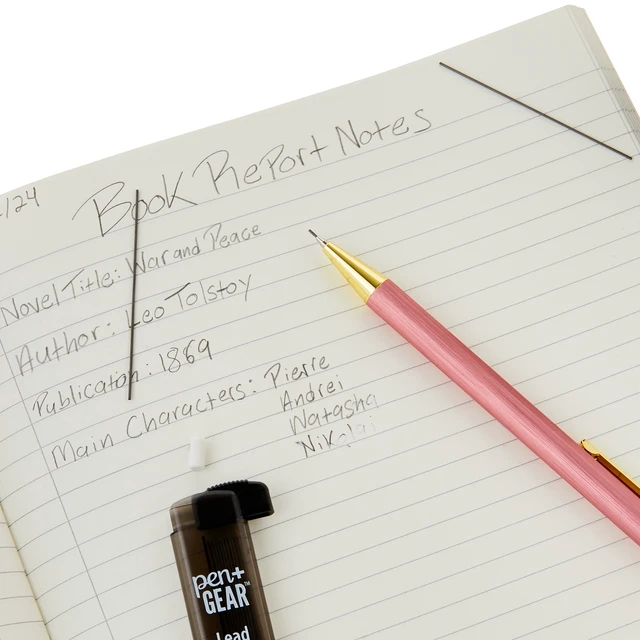 /24
Book Report Notes
Novel Title: War and Peace
Author: Leo Tolstoy
Publication: 1869
Main Characters: Pierre
Andrei
Natasha
Nikolai
pen+
GEAR™
Lead